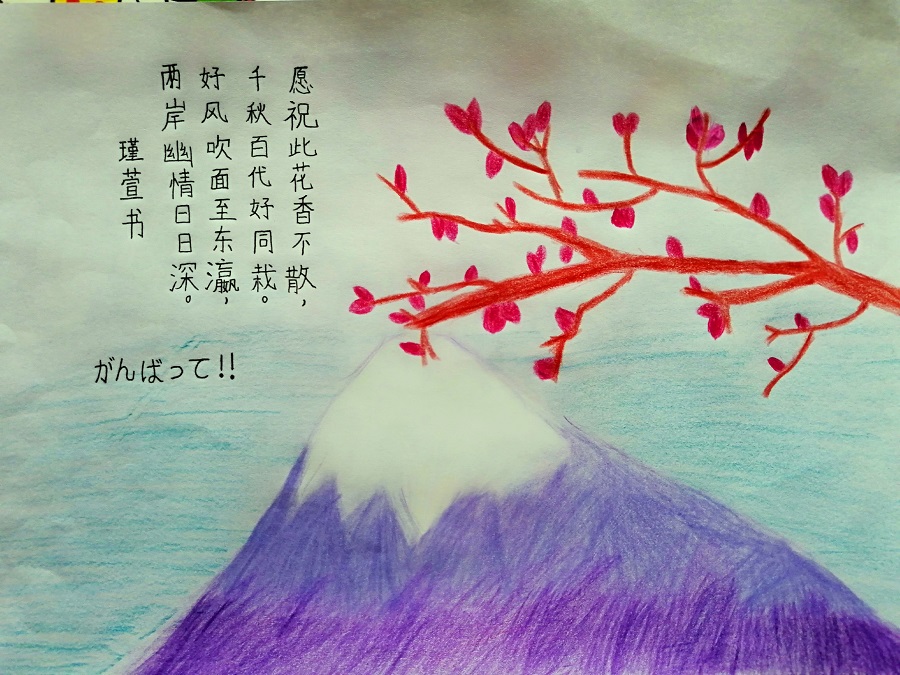 愿祝此花香不散，
千秋百代好同栽。
好风吹面至东瀛，
两岸幽情日日深。
瑾萱书
がんばって!!